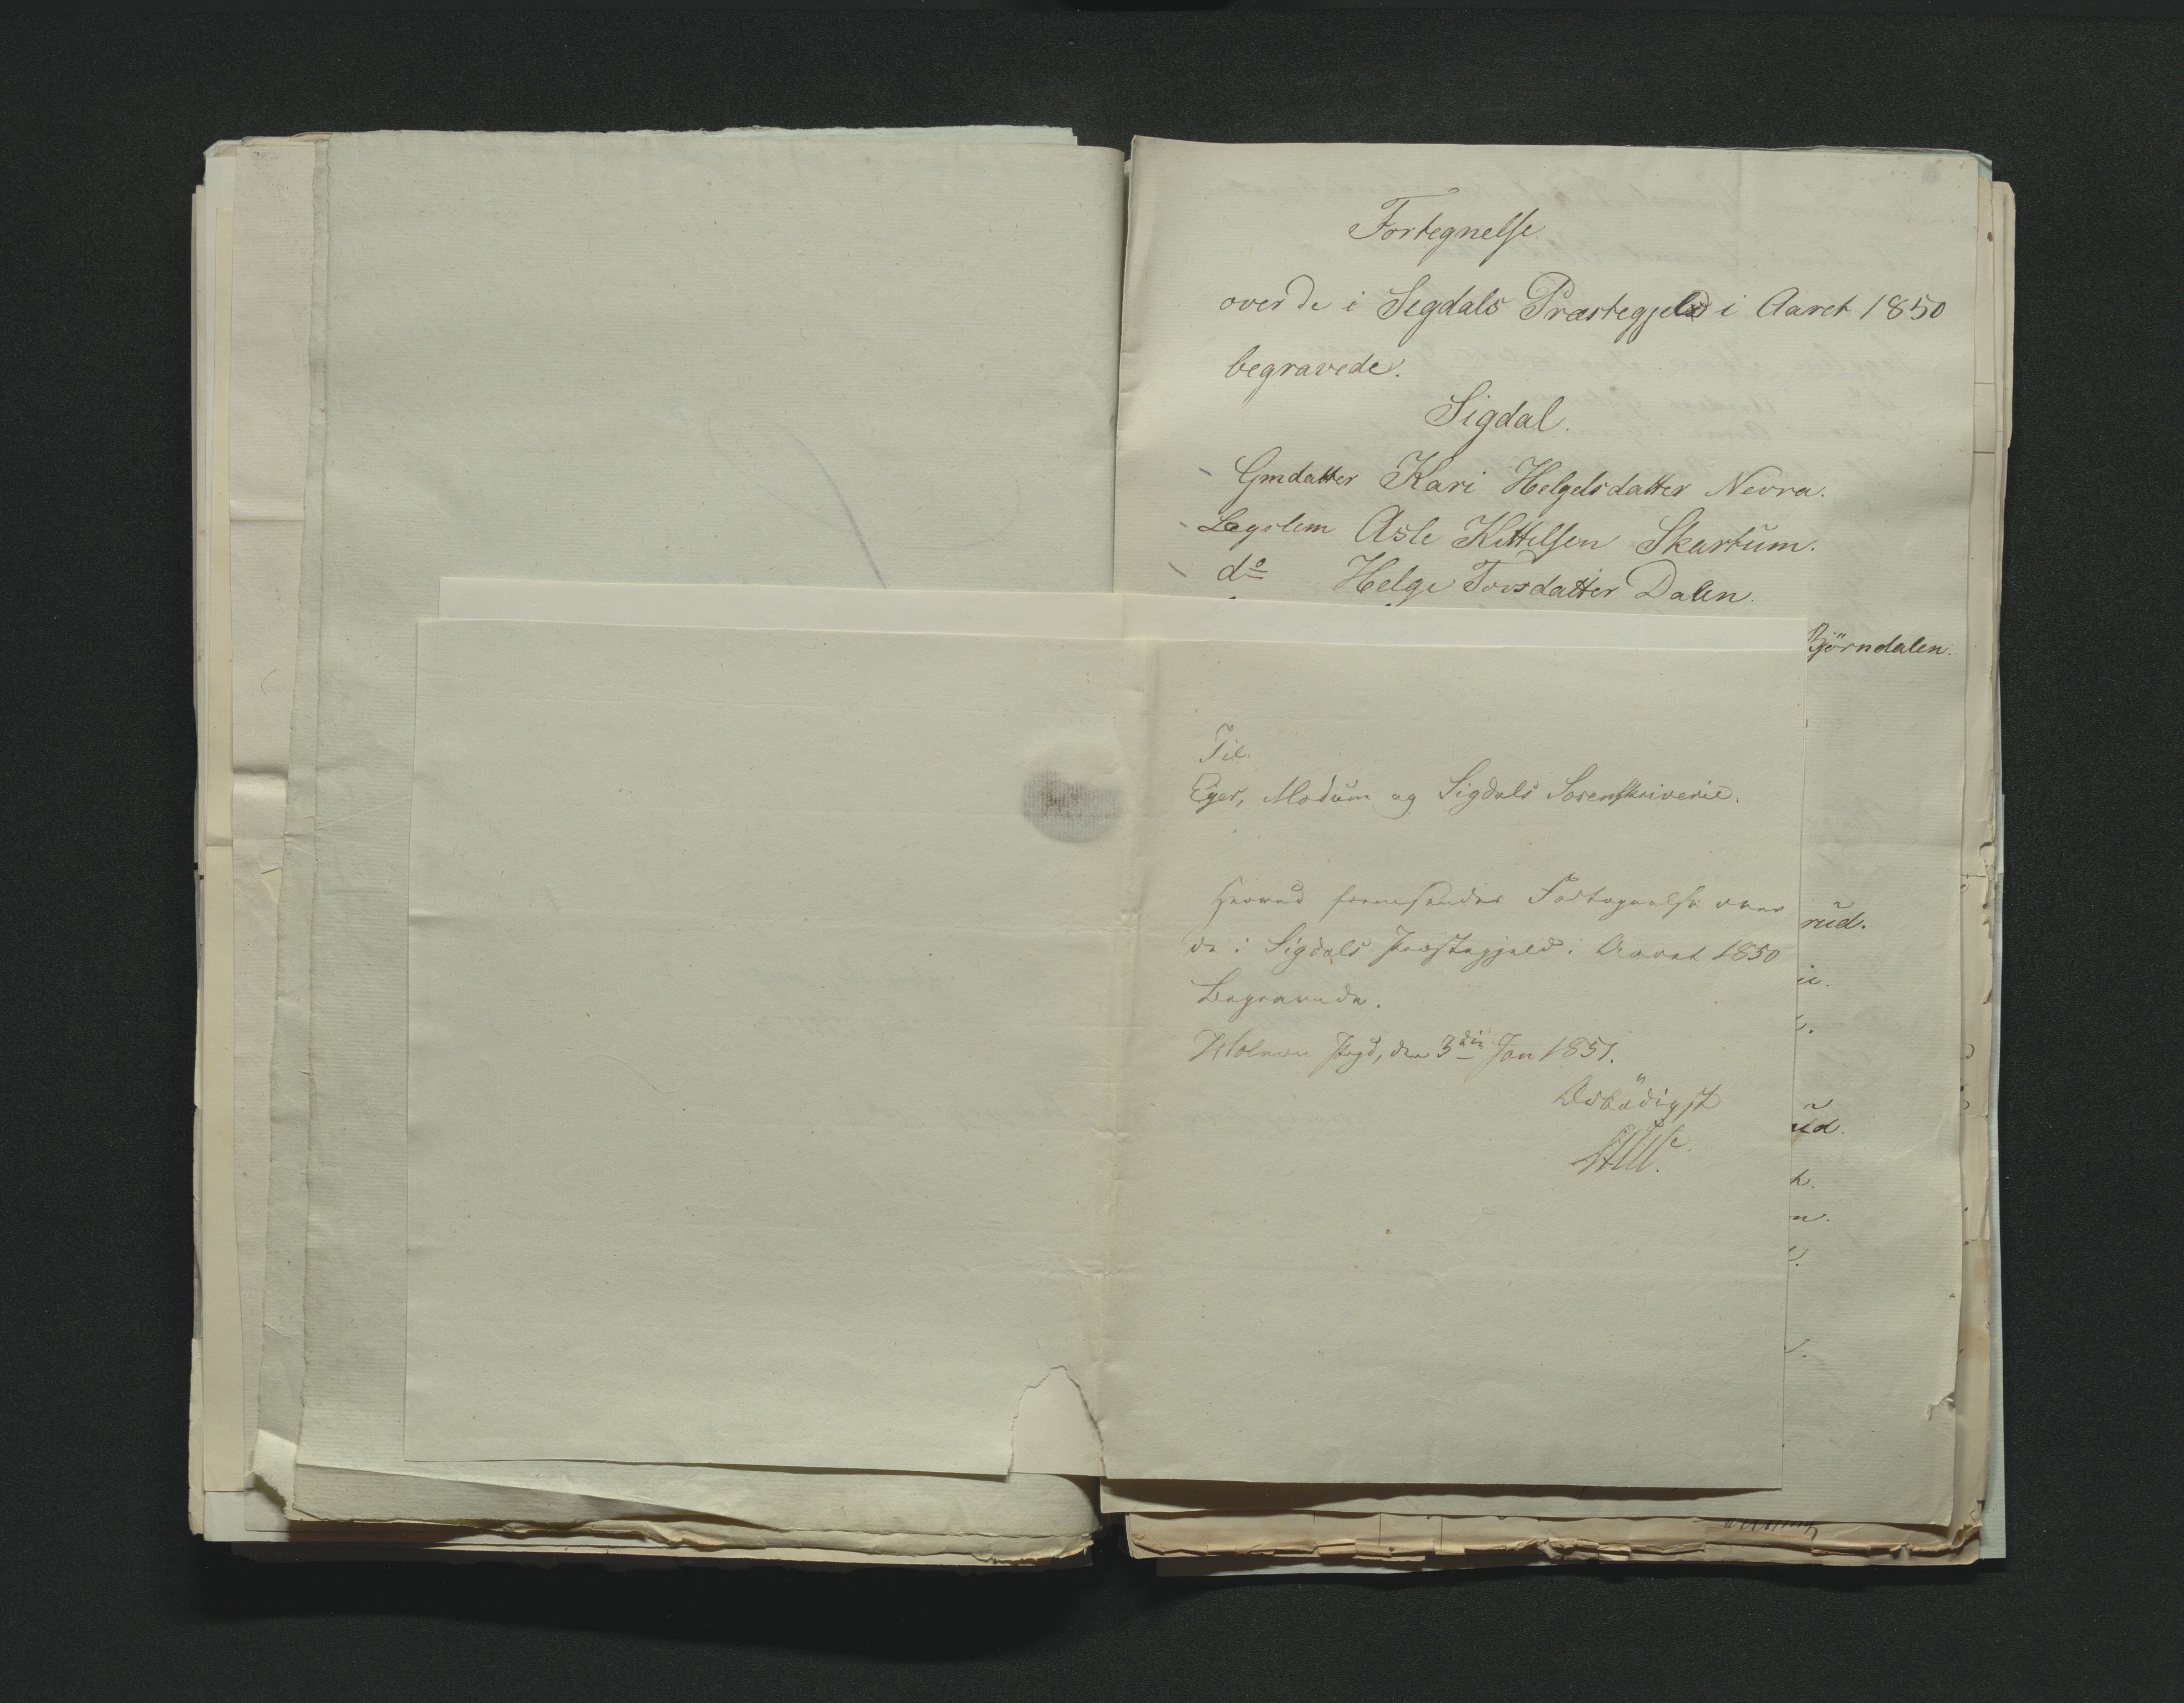 Fortegnelse
over de i Segdals Præstegjeld i Aaret 1850
begravede.
Sigdal.
Gmdatter Kari Helgelsdatter Nevra.
Lægslem Asle Kittelsen Skartum.
do Helge Torsdatter Dalen.
Bjørndalen.
Til
Eger, Modum og Sigdals Sorenskriverie.
Herved fremsendes Fortegnelse over
de i Sigdals Præstegjeld i Aaret 1850
Begravede.
Holmen Pgd, den 3die Jan 1851.
Ærbødigst
rud.
ie.
ud.
k.
n.